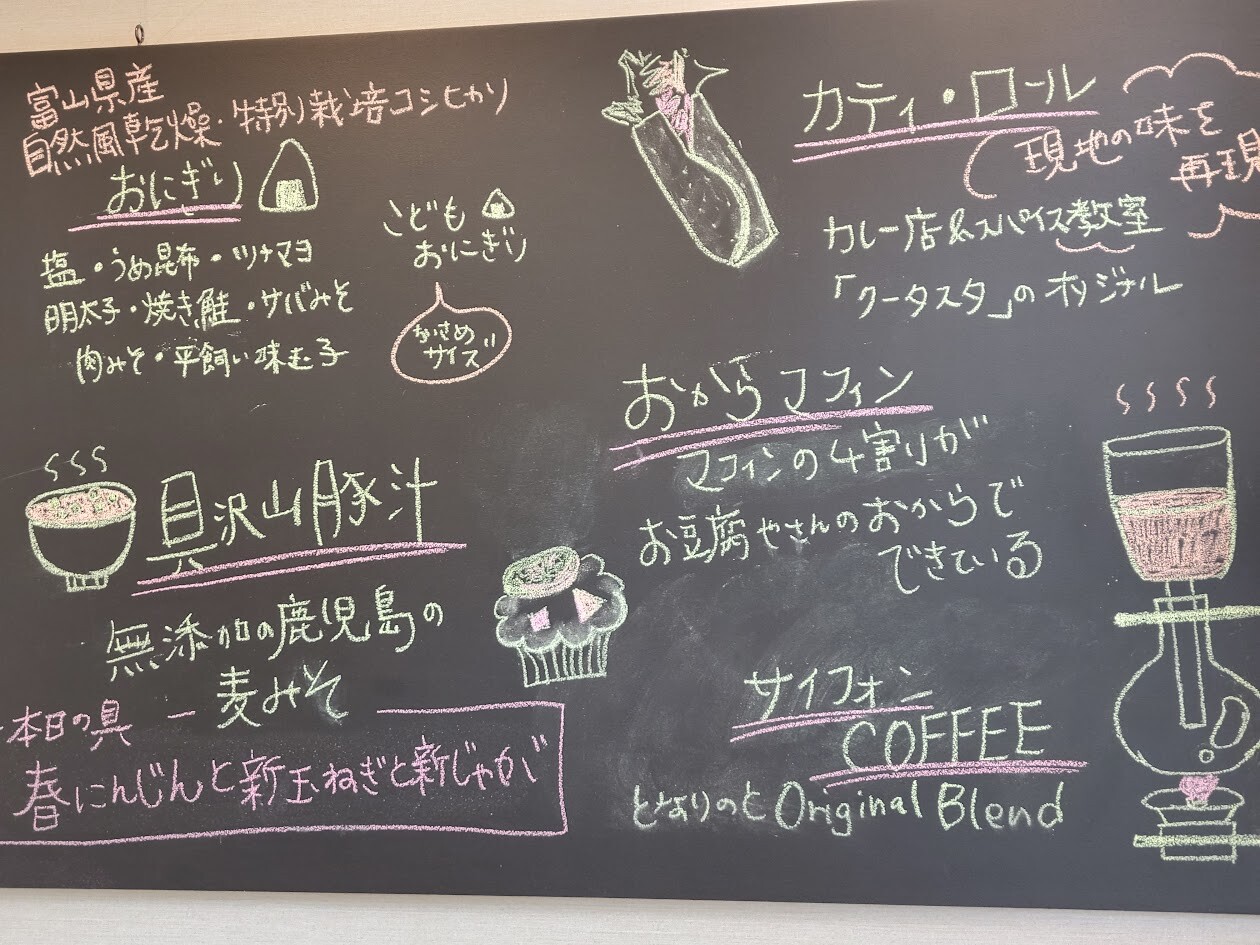 富山県産
自然風乾燥・特別栽培コシヒカリ
おにぎり
塩・うめ昆布・ツナマヨ
明太子・焼き鮭・サバみそ
肉みそ・平飼い味玉子
こども
おにぎり
小さめ
サイズ
具沢山豚汁
無添加の鹿児島の
麦みそ
本日の具
春にんじんと新玉ねぎと新じゃが
カティ・ロール
現地の味を
再現
カレー店&スパイス教室
「クータスタ」のオリジナル
おからマフィン
マフィンの4割りが
お豆腐やさんのおからで
できている
サイフォン
COFFEE
となりのと Original Blend